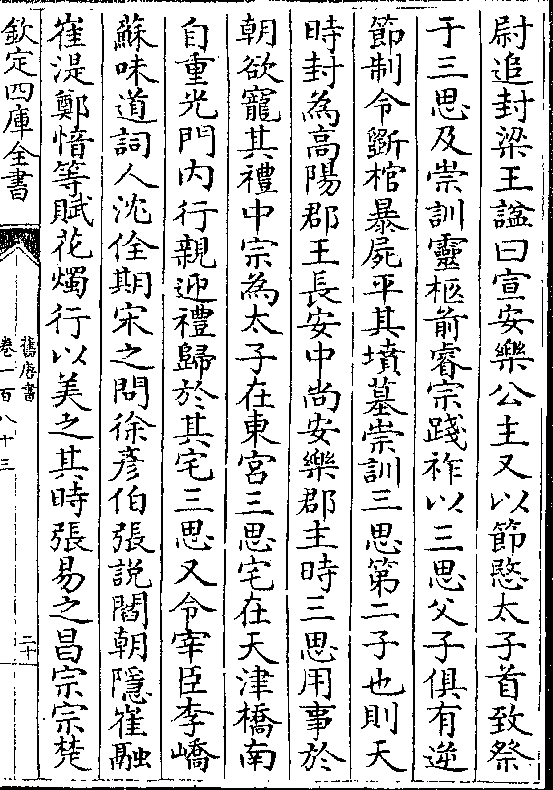 尉追封梁王諡曰宣安樂公主又以節愍太子首致祭
于三思及崇訓靈柩前睿宗踐祚以三思父子俱有逆
節制令斵棺暴屍平其墳墓崇訓三思第二子也則天
時封為高陽郡王長安中尚安樂郡主時三思用事於
朝欲寵其禮中宗為太子在東宮三思宅在天津橋南
自重光門内行親迎禮歸於其宅三思又令宰臣李嶠
蘇味道詞人沈佺期宋之問徐彥伯張說閻朝隱崔融
崔湜鄭愔等賦花燭行以美之其時張易之昌宗宗楚
欽定四庫全書
舊唐書
卷一百八十三
二十